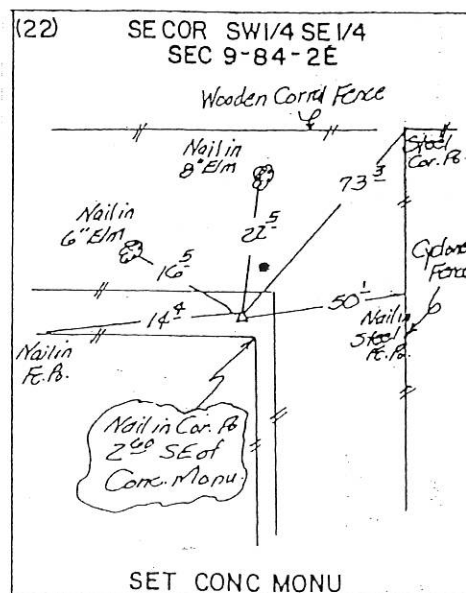 (22) SE COR SW1/4 SE1/4
SEC 9-84-2E
Wooden Corral Fence
Nail in
8" Elm
Steel
Cor. Po.
73³
Nail in
6" Elm
22⁵
16⁵
Cyclone
Fence
50¹
14⁴
Nail in
Steel
Fe. Po.
Nail in
Fe. Po.
Nail in Cor. Po
2⁶⁰ SE of
Conc. Monu.
SET CONC MONU